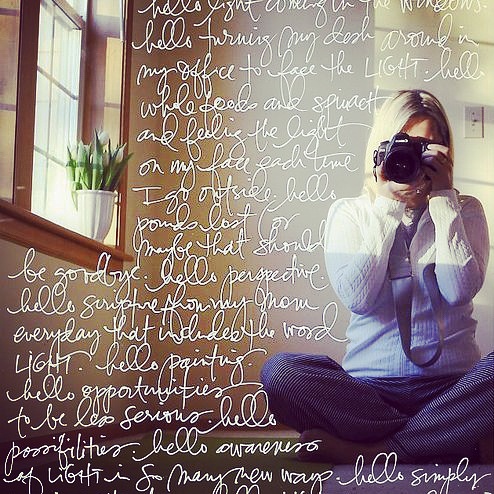 hello light coming in the windows.
hello turning my desk around in
my office to face the LIGHT. hello
whole foods and spinach
and feeling the light
on my face each time
I go outside. hello
pounds lost (or
maybe that should
be goodbye. hello perspective.
hello scripture from my mom
everyday that includes the word
LIGHT. hello painting.
hello opportunities
to be less serious. hello
possibilities. hello awareness
of LIGHT in so many new ways. hello simply